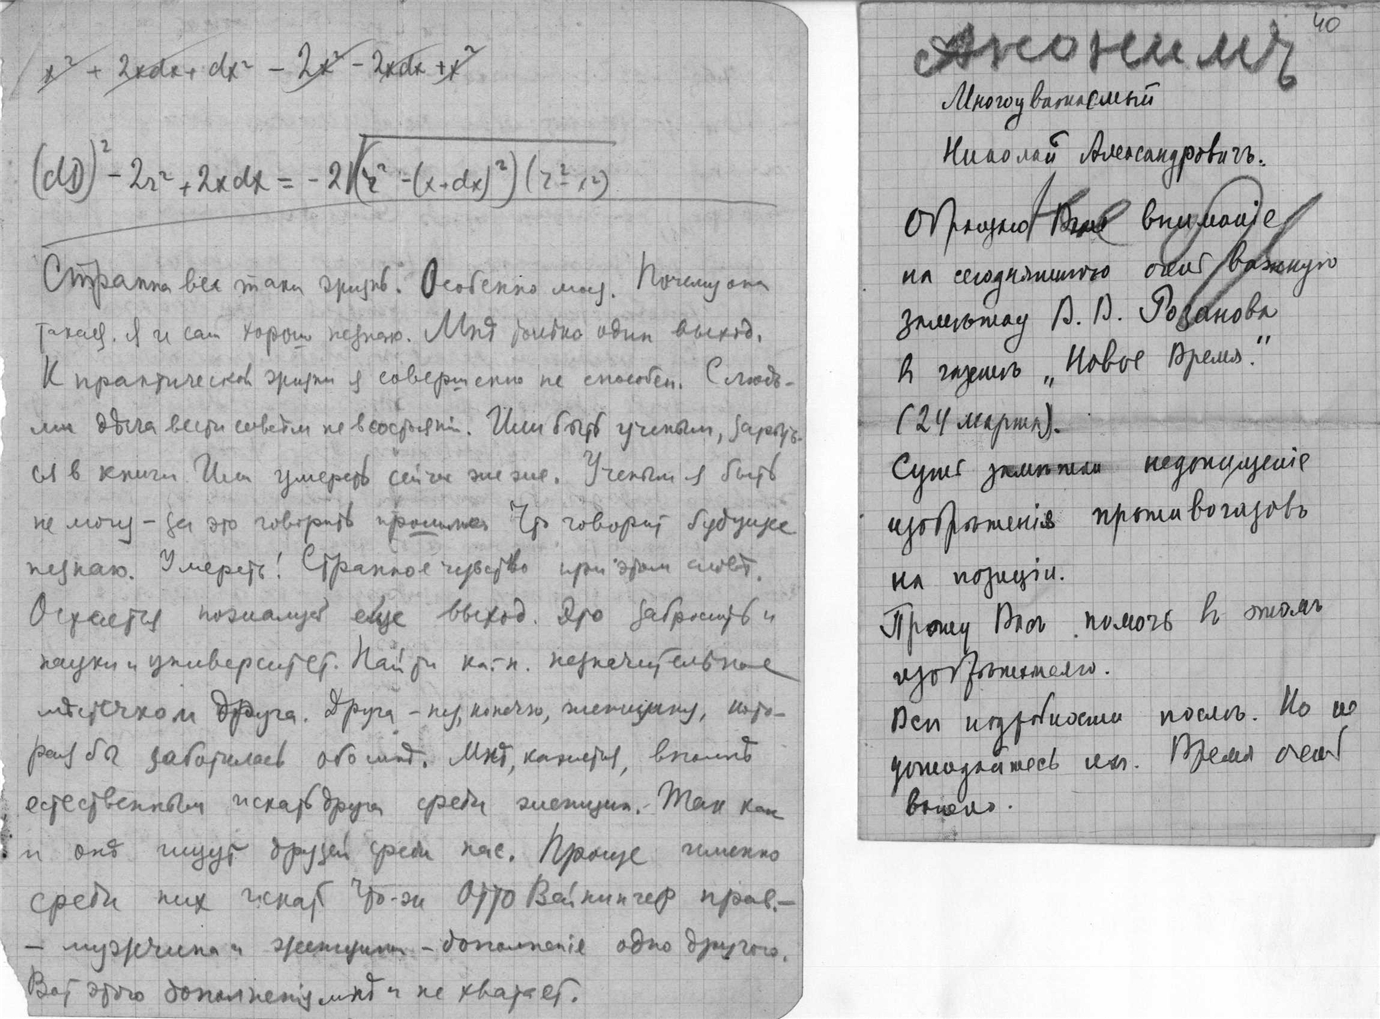 x² + 2xdx + dx² - 2x² - 2xdx + x²
(dD)² - 2r² + 2xdx = -2√(r² - (x+dx)²)(r² - x²)
Странна все таки жизнь. Особенно моя. Почему она
такая, я и сам хорошо незнаю. Мнѣ только один выход.
К практической жизни я совершенно не способен. С людь-
ми дѣла вести совсѣм не в состоянiи. Или быть ученым, зарыть-
ся в книги. Или умереть сейчас же. Ученым я быть
не могу – за это говорить прошлое. Что говорит будущее
незнаю. Умереть! Странное чувство при этом словѣ.
Остается пожалуй еще выход. Это забросить и
науки и университет. Найти к.-н. незначительное
мѣстечко и друга. Друга – ну, конечно, женщину, кото-
рая бы заботилась обо мнѣ. Мнѣ, кажется, вполнѣ
естественным искать друга среди женщин. Так как
и онѣ ищут друзей среди нас. Проще именно
среди них искать. Что-ж Отто Вейнингер прав. –
– мужчина и женщина – дополненiе одно другого.
Вот этого дополненiя мнѣ и не хватает.
40
Анонимъ
Многоуважаемый
Николай Александровичъ.
Обращаю Ваше вниманiе
на сегодняшнюю очень важную
замѣтку В. В. Розанова
въ газетѣ „Новое Время."
(24 марта).
Суть замѣтки недопущенiе
изобрѣтенiя противогазовъ
на позицiи.
Прошу Васъ помочь въ этомъ
изобрѣтателю.
Всѣ подробности послѣ. Но не
дожидайтесь ихъ. Время очень